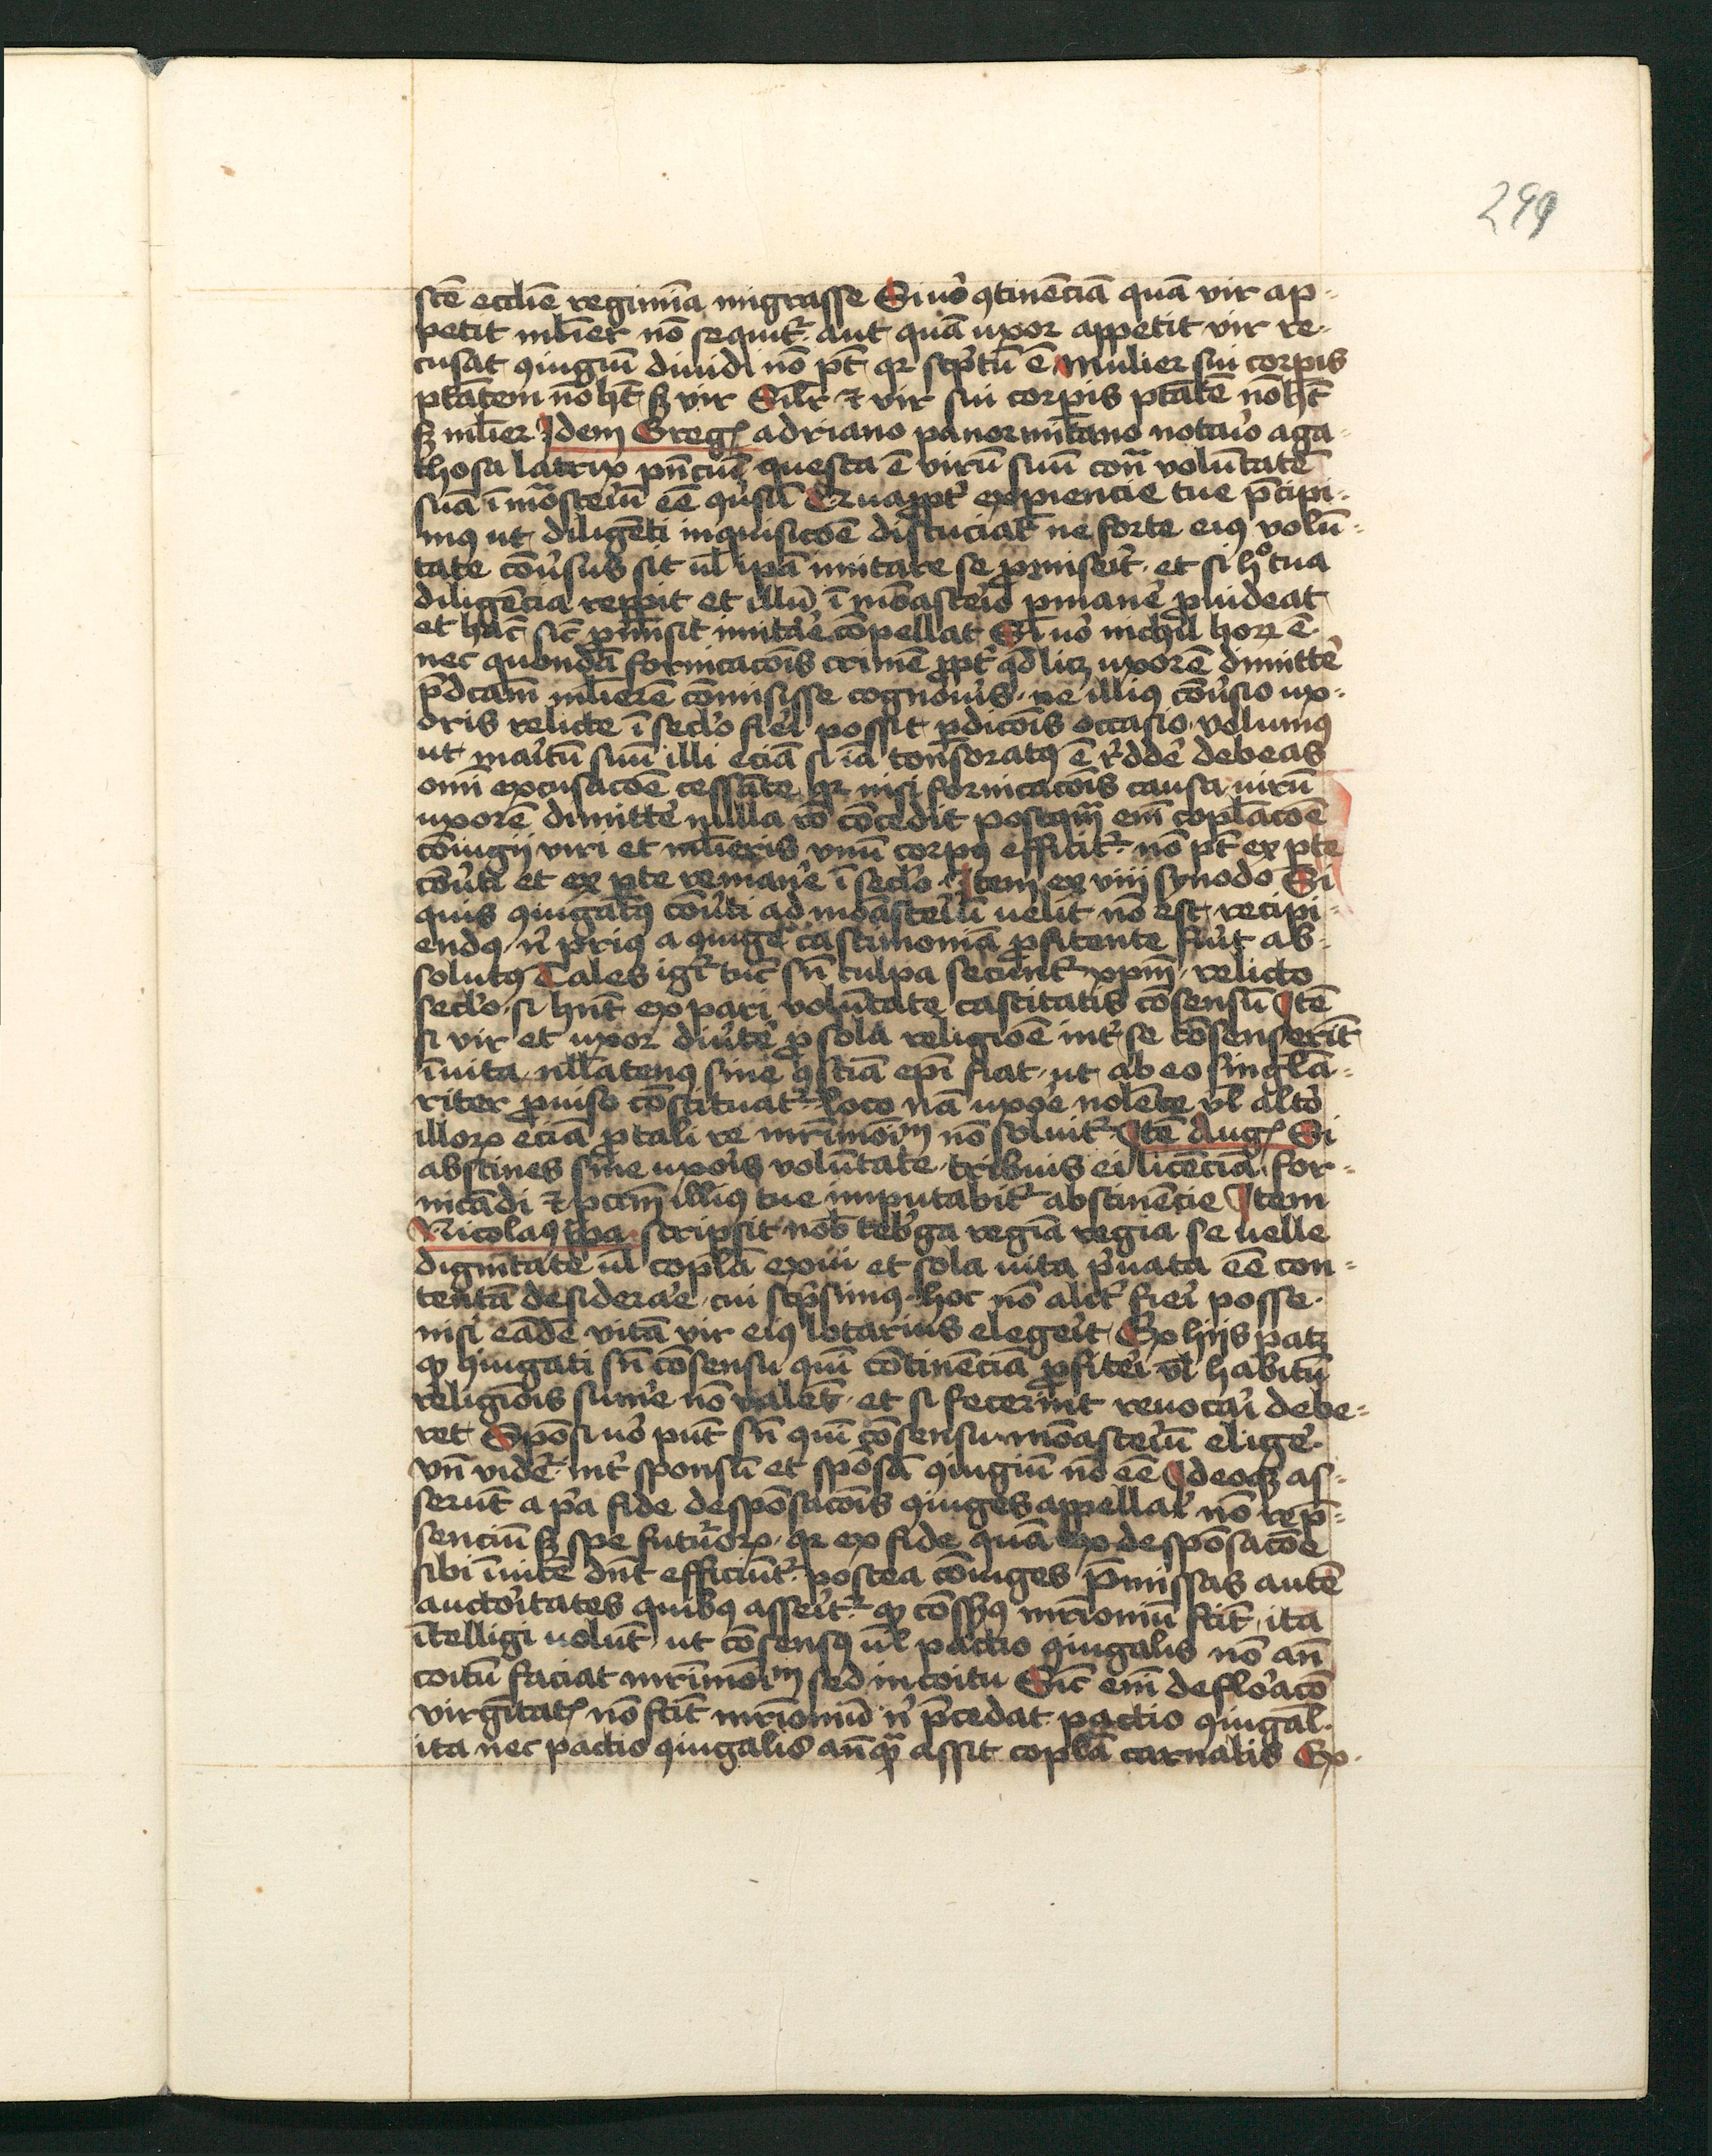 299
scē ecclīe regimīa migrasse Si uo͛ ꝯtinēciā quā vir ap-
petit mlīer nō sequit᷑ aut quā uxor appetit vir re-
cusat ꝯiugiū diuidi nō pt̄ qr scptū ē Mulier sui corpis
ptātem nō hꝫ sꝫ vir Silr̄ ⁊ vir sui corpis ptātē nō hꝫ
sꝫ mlīer Idem Greg᷒ adriano panormitano notaio aga-
thosa latrix pn̄ciū questa ē virū suū cont̄ volūtatē
suā ī mōsteiū eē ꝯu͛sū ꝑpt͛ expiencie tue p̄cipi-
mꝰ ut diligēti inquisicōe discuciat ne forte eiꝰ volū-
tate cōu͛sus sit ul̄ ipā mitare se ꝓmiseit et si hᵒ tua
diligēcia reppit et illū ī mōasteio pmane͛ ꝓuideat
et hāc sic̄ ꝓmisit mitae͛ cōpellat Si uo͛ nichil hoꝝ ē
nec quondā fornicacōis crimē ꝓpt͛ qd̄ licꝫ uxorē dimitte͛
p̄dcām mlīerē cōmisisse cognou͛is ne illiꝰ cōu͛sio ux-
oris relicte ī secl̄o fiei possit pdicōis occasio volumꝰ
ut maitū suū illi eciā si iā tonsoratꝰ ē redde͛ debeas
omī excusacōe cessāte qr nisi fornicacōis causa virū
uxorē dimitte͛ nulla rō cōcedit postqᵐ em̄ copl̄acōe
cōiugij viri et mlīeris vnū corpꝰ efficit᷑ nō pt̄ ex pte
cōu͛ti et ex pte remane͛ ī secl̄o Item ex viij synodo Si
quis ꝯiugatꝰ cōu͛ti ad mōasteiū uelit nō est recipi-
endꝰ n̄ priꝰ a ꝯiuge castimoniā ꝓfitente fuīt ab-
solutꝰ Tales igr̄ tūc sn̄ culpa secūnt᷑ xpm̄ relicto
secl̄o si hn̄t ex pari volūtate castitatis cōsensū Itē
si vir et uxor diu͛te͛ ꝓ sola religiōe int͛ se cōsenserīt
ī uita nll̄atenꝰ sine ꝯsciā epī fiat ut ab eo singl̄a-
riter ꝓuiso cōstituat᷑ loco nā uxoe nolēte ul̄ alto͛
illoꝝ eciā ꝓ tali re mr̄imōiᵐ nō soluit᷑ Itē Aug᷒ Si
abstines sine uxois volūtate tribuis ei licēciā for-
nicādi ⁊ pctm̄ illiꝰ tue imputabit᷑ abstinēcie Item
Nicolaꝰ ppa scripsit nob̄ tebga regīa regia se uelle
dignitate ul̄ copl̄a exui et sola uita p͛uata eē con-
tentā desiderae cui scpsimꝰ hoc nō alit͛ fiei posse
nisi eādē vitā vir eiꝰ lotarius elegeit Ex hijs patꝫ
qꝫ ꝯiugati sn̄ cōsensu qui cōtinēciā ꝓfitei ul̄ habitū
religiōis sume͛ nō valēt et si fecerint reuocai debe-
ret Sponsi uo͛ pn̄t sn̄ quī cōsensu mōasteiū elige͛
vn̄ videt᷑ int͛ sponsū et spōsā ꝯiugiū nō eē Ideoqꝫ as-
serūt a p͛a fide despōsacōis ꝯiuges appellai nō re p̄-
senciū sꝫ spe futuroꝝ qr ex fide quā ex despōsacōe
sibi īuicē dn̄t efficiūt᷑ postea cōiuges P̄missas autē
auctoitates quibꝰ asseit᷑ qꝫ cōsꝰ mr̄ioniū fcīt ita
ītelligi uolūt ut cōsensꝰ ul̄ pactio ꝯiugalis nō an̄
coitū faciat mr̄imōiᵐ sed in coitu Sic̄ em̄ defloacō
virgītat᷒ nō fcīt mr̄ioniū n̄ p̄cedat pactio ꝯiugal
ita nec pactio ꝯiugalis an̄qᵃ assit copl̄a carnalis Ex